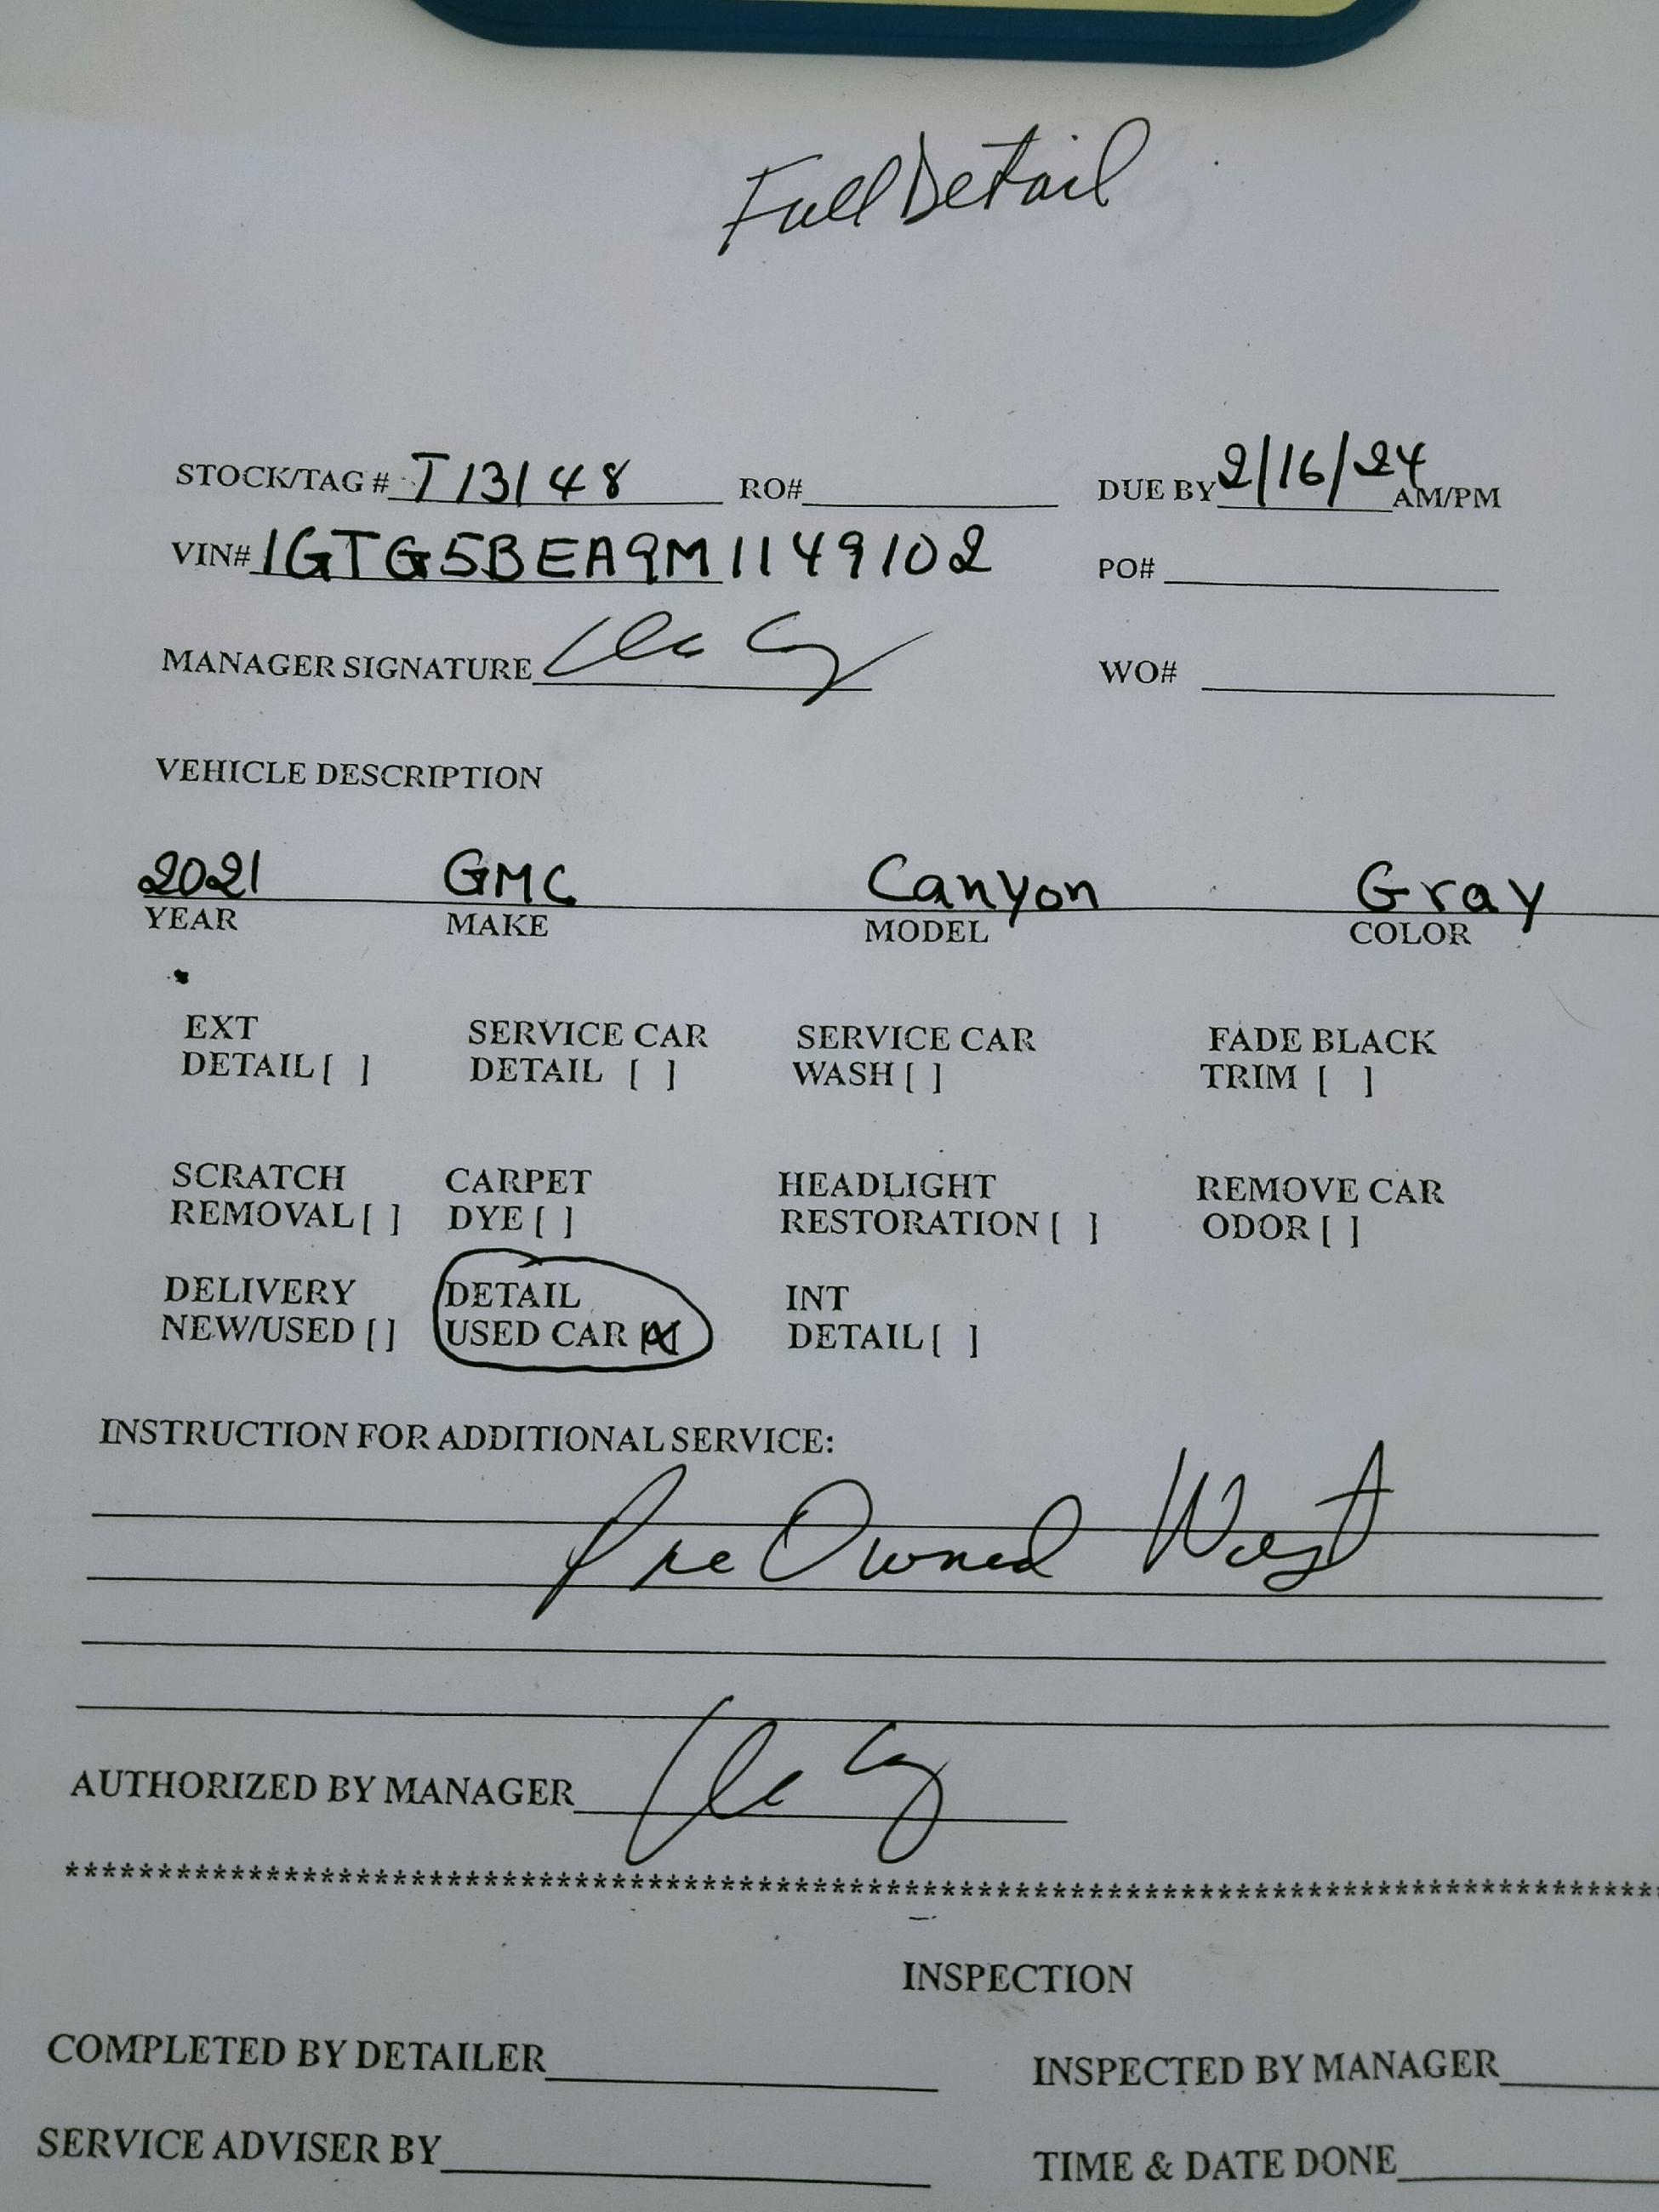 Full Detail
STOCK/TAG # T13148 RO# DUE BY 2/16/24 AM/PM
VIN# 1GTG5BEA9M1149102 PO#
MANAGER SIGNATURE WO#
VEHICLE DESCRIPTION
2021 GMC Canyon Gray
YEAR MAKE MODEL COLOR
EXT SERVICE CAR SERVICE CAR FADE BLACK
DETAIL [ ] DETAIL [ ] WASH [ ] TRIM [ ]
SCRATCH CARPET HEADLIGHT REMOVE CAR
REMOVAL [ ] DYE [ ] RESTORATION [ ] ODOR [ ]
DELIVERY DETAIL INT
NEW/USED [ ] USED CAR [X] DETAIL [ ]
INSTRUCTION FOR ADDITIONAL SERVICE:
Pre Owned West
AUTHORIZED BY MANAGER
****************************************************************************************
INSPECTION
COMPLETED BY DETAILER INSPECTED BY MANAGER
SERVICE ADVISER BY TIME & DATE DONE